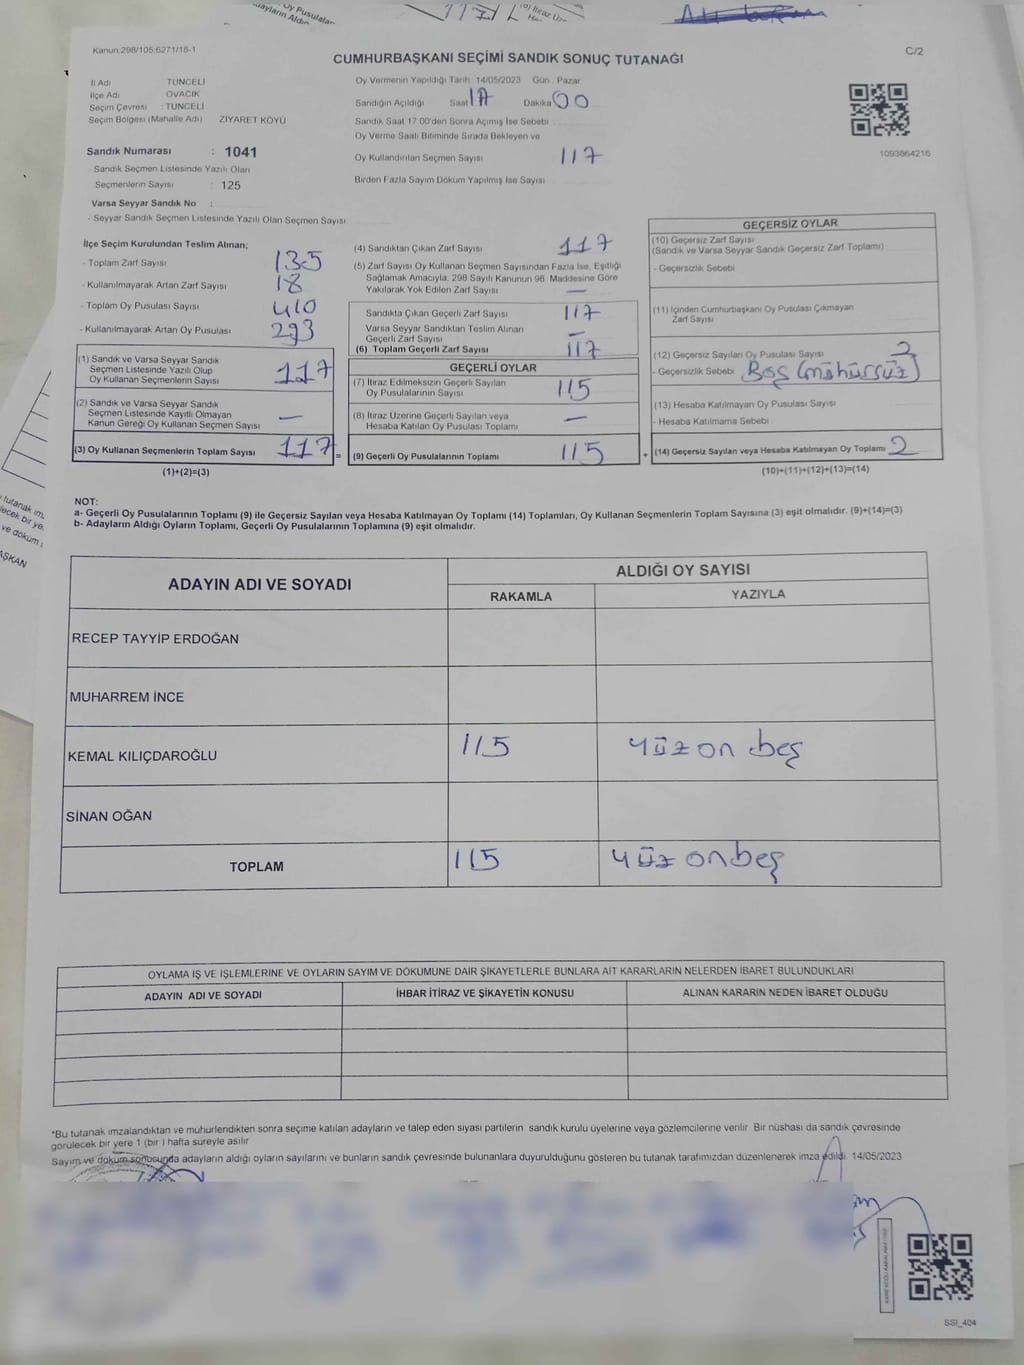 Kanun:298/105;6271/18-1
C/2
CUMHURBAŞKANI SEÇİMİ SANDIK SONUÇ TUTANAĞI
İl Adı TUNCELİ
İlçe Adı OVACIK
Seçim Çevresi : TUNCELİ
Seçim Bölgesi (Mahalle Adı) ZİYARET KÖYÜ
Sandık Numarası : 1041
- Sandık Seçmen Listesinde Yazılı Olan
Seçmenlerin Sayısı : 125
Varsa Seyyar Sandık No :
- Seyyar Sandık Seçmen Listesinde Yazılı Olan Seçmen Sayısı
Oy Vermenin Yapıldığı Tarih 14/05/2023 Gün : Pazar
Sandığın Açıldığı Saat 17 Dakika 00
Sandık Saat 17:00'den Sonra Açılmış İse Sebebi
Oy Verme Saati Bitiminde Sırada Bekleyen ve
Oy Kullandırılan Seçmen Sayısı 117
Birden Fazla Sayım Döküm Yapılmış İse Sayısı
1093864216
İlçe Seçim Kurulundan Teslim Alınan;
- Toplam Zarf Sayısı 135
- Kullanılmayarak Artan Zarf Sayısı 18
- Toplam Oy Pusulası Sayısı 410
- Kullanılmayarak Artan Oy Pusulası 293
(1) Sandık ve Varsa Seyyar Sandık
Seçmen Listesinde Yazılı Olup
Oy Kullanan Seçmenlerin Sayısı 117
(2) Sandık ve Varsa Seyyar Sandık
Seçmen Listesinde Kayıtlı Olmayan
Kanun Gereği Oy Kullanan Seçmen Sayısı —
(3) Oy Kullanan Seçmenlerin Toplam Sayısı 117 =
(1)+(2)=(3)
(4) Sandıktan Çıkan Zarf Sayısı 117
(5) Zarf Sayısı Oy Kullanan Seçmen Sayısından Fazla İse, Eşitliği
Sağlamak Amacıyla; 298 Sayılı Kanunun 98. Maddesine Göre
Yakılarak Yok Edilen Zarf Sayısı —
Sandıkta Çıkan Geçerli Zarf Sayısı 117
Varsa Seyyar Sandıktan Teslim Alınan
Geçerli Zarf Sayısı —
(6) Toplam Geçerli Zarf Sayısı 117
GEÇERLİ OYLAR
(7) İtiraz Edilmeksizin Geçerli Sayılan
Oy Pusulalarının Sayısı 115
(8) İtiraz Üzerine Geçerli Sayılan veya
Hesaba Katılan Oy Pusulası Toplamı —
(9) Geçerli Oy Pusulalarının Toplamı 115 +
GEÇERSİZ OYLAR
(10) Geçersiz Zarf Sayısı
(Sandık ve Varsa Seyyar Sandık Geçersiz Zarf Toplamı)
- Geçersizlik Sebebi
(11) İçinden Cumhurbaşkanı Oy Pusulası Çıkmayan
Zarf Sayısı
(12) Geçersiz Sayılan Oy Pusulası Sayısı 2
- Geçersizlik Sebebi Boş (mühürsüz)
(13) Hesaba Katılmayan Oy Pusulası Sayısı
- Hesaba Katılmama Sebebi
(14) Geçersiz Sayılan veya Hesaba Katılmayan Oy Toplamı 2
(10)+(11)+(12)+(13)=(14)
NOT:
a- Geçerli Oy Pusulalarının Toplamı (9) ile Geçersiz Sayılan veya Hesaba Katılmayan Oy Toplamı (14) Toplamları, Oy Kullanan Seçmenlerin Toplam Sayısına (3) eşit olmalıdır. (9)+(14)=(3)
b- Adayların Aldığı Oyların Toplamı, Geçerli Oy Pusulalarının Toplamına (9) eşit olmalıdır.
ADAYIN ADI VE SOYADI
ALDIĞI OY SAYISI
RAKAMLA YAZIYLA
RECEP TAYYİP ERDOĞAN
MUHARREM İNCE
KEMAL KILIÇDAROĞLU 115 yüz on beş
SİNAN OĞAN
TOPLAM 115 yüz onbeş
OYLAMA İŞ VE İŞLEMLERİNE VE OYLARIN SAYIM VE DÖKÜMÜNE DAİR ŞİKAYETLERLE BUNLARA AİT KARARLARIN NELERDEN İBARET BULUNDUKLARI
ADAYIN ADI VE SOYADI İHBAR İTİRAZ VE ŞİKAYETİN KONUSU ALINAN KARARIN NEDEN İBARET OLDUĞU
*Bu tutanak imzalandıktan ve mühürlendikten sonra seçime katılan adayların ve talep eden siyasi partilerin sandık kurulu üyelerine veya gözlemcilerine verilir. Bir nüshası da sandık çevresinde
görülecek bir yere 1 (bir ) hafta süreyle asılır
Sayım ve döküm sonucunda adayların aldığı oyların sayılarını ve bunların sandık çevresinde bulunanlara duyurulduğunu gösteren bu tutanak tarafımızdan düzenlenerek imza edildi. 14/05/2023
SSI_404